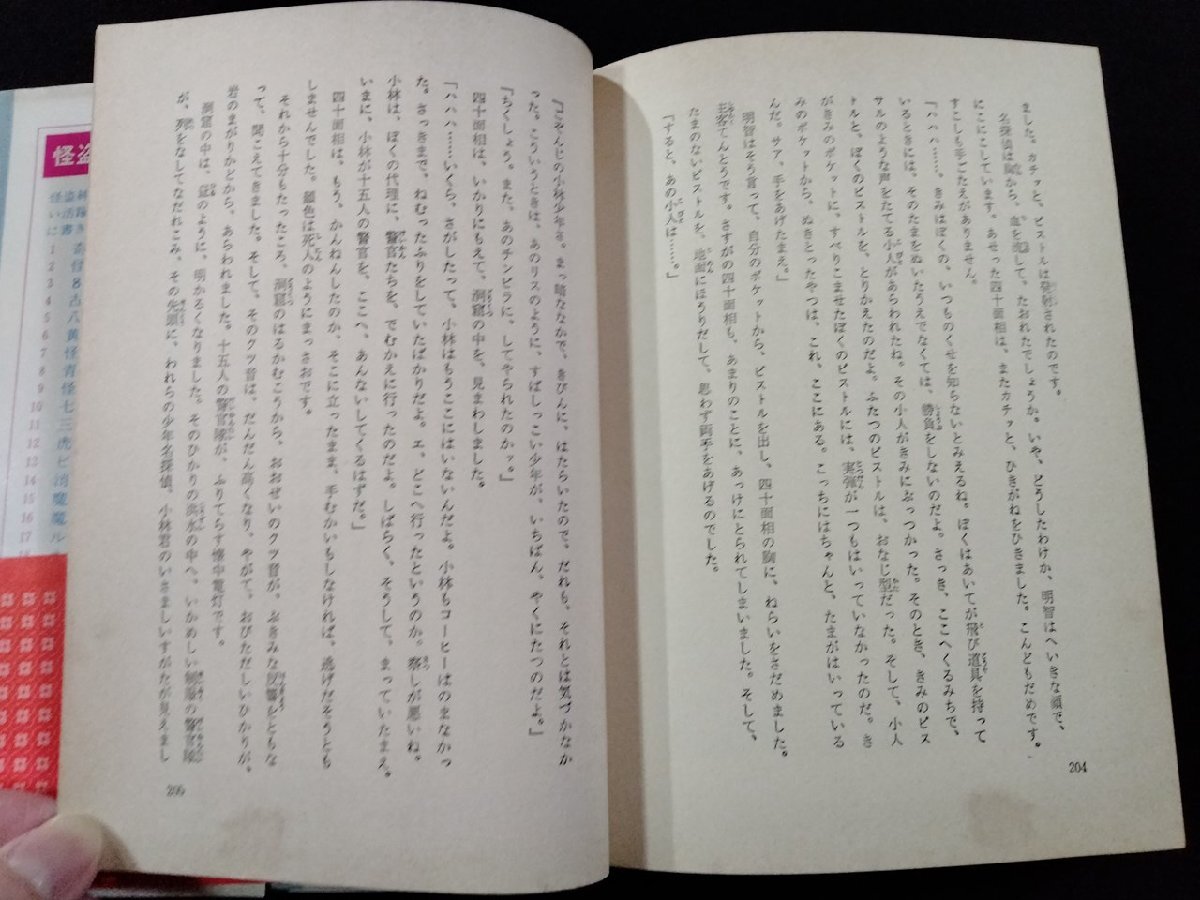 ました。カチッと、ピストルは発射されたのです。
名探偵は胸から、血を流して、たおれたでしょうか。いや、どうしたわけか、明智はへいきな顔で、
にこにこしています。あせった四十面相は、またカチッと、ひきがねをひきました。こんどもだめです。
すこしも手ごたえがありません。
「ハハハ……。きみはぼくの、いつものくせを知らないとみえるね。ぼくはあいてが飛び道具を持って
いるときには、そのたまをぬいたうえでなくては、勝負をしないのだよ。さっき、ここへくるみちで、
サルのような声をたてる小人があらわれたね。その小人がきみにぶっつかった。そのとき、きみのピス
トルと、ぼくのピストルを、とりかえたのだよ。ふたつのピストルは、おなじ型だった。そして、小人
がきみのポケットに、すべりこませたぼくのピストルには、実弾が一つもはいっていなかったのだ。き
みのポケットから、ぬきとったやつは、これ、ここにある。こっちにはちゃんと、たまがはいっている
んだ。サア、手をあげたまえ。」
明智はそう言って、自分のポケットから、ピストルを出し、四十面相の胸に、ねらいをさだめました。
主客てんとうです。さすがの四十面相も、あまりのことに、あっけにとられてしまいました。そして、
たまのないピストルを、地面にほうりだして、思わず両手をあげるのでした。
「すると、あの小人は……。」
204
「ごぞんじの小林少年さ。まっ暗ななかで、きびんに、はたらいたので、だれも、それとは気づかなか
った。こういうときは、あのリスのように、すばしっこい少年が、いちばん、やくにたつのだよ。」
「ちくしょう。また、あのチンピラに、してやられたのかッ。」
四十面相は、いかりにもえて、洞窟の中を、見まわしました。
「ハハハ……いくら、さがしたって、小林はもうここにはいないんだよ。小林もコーヒーはのまなかっ
た。さっきまで、ねむったふりをしていたばかりだよ。エ、どこへ行ったというのか。察しが悪いね。
小林は、ぼくの代理に、警官たちを、でむかえに行ったのだよ。しばらく、そうして、まっていたまえ。
いまに、小林が十五人の警官を、ここへ、あんないしてくるはずだ。」
四十面相は、もう、かんねんしたのか、そこに立ったまま、手むかいもしなければ、逃げだそうとも
しませんでした。顔色は死人のようにまっさおです。
それから十分もたったころ、洞窟のはるかむこうから、おおぜいのクツ音が、ぶきみな反響をともな
って、聞こえてきました。そして、そのクツ音は、だんだん高くなり、やがて、おびただしいひかりが、
岩のまがりかどから、あらわれました。十五人の警官隊が、ふりてらす懐中電灯です。
洞窟の中は、昼のように、明かるくなりました。そのひかりの洪水の中へ、いかめしい制服の警官隊
が、列をなしてなだれこみ、その先頭に、われらの少年名探偵、小林君のいさましいすがたが見えまし
怪盗
1
2
3
4
5
6
7
8
9
10
11
12
13
14
15
16
17